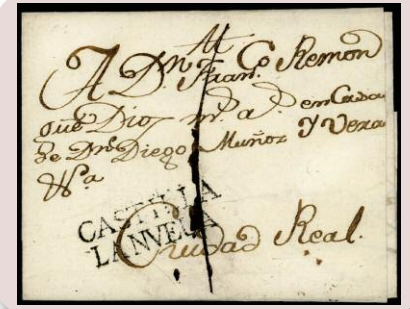 A Dn. Franco. Remon
que Dios m.s a.s en Casa
de Dn. Diego Muñoz Y Vera
CASTILLA
LANVEVA
Ciudad Real.